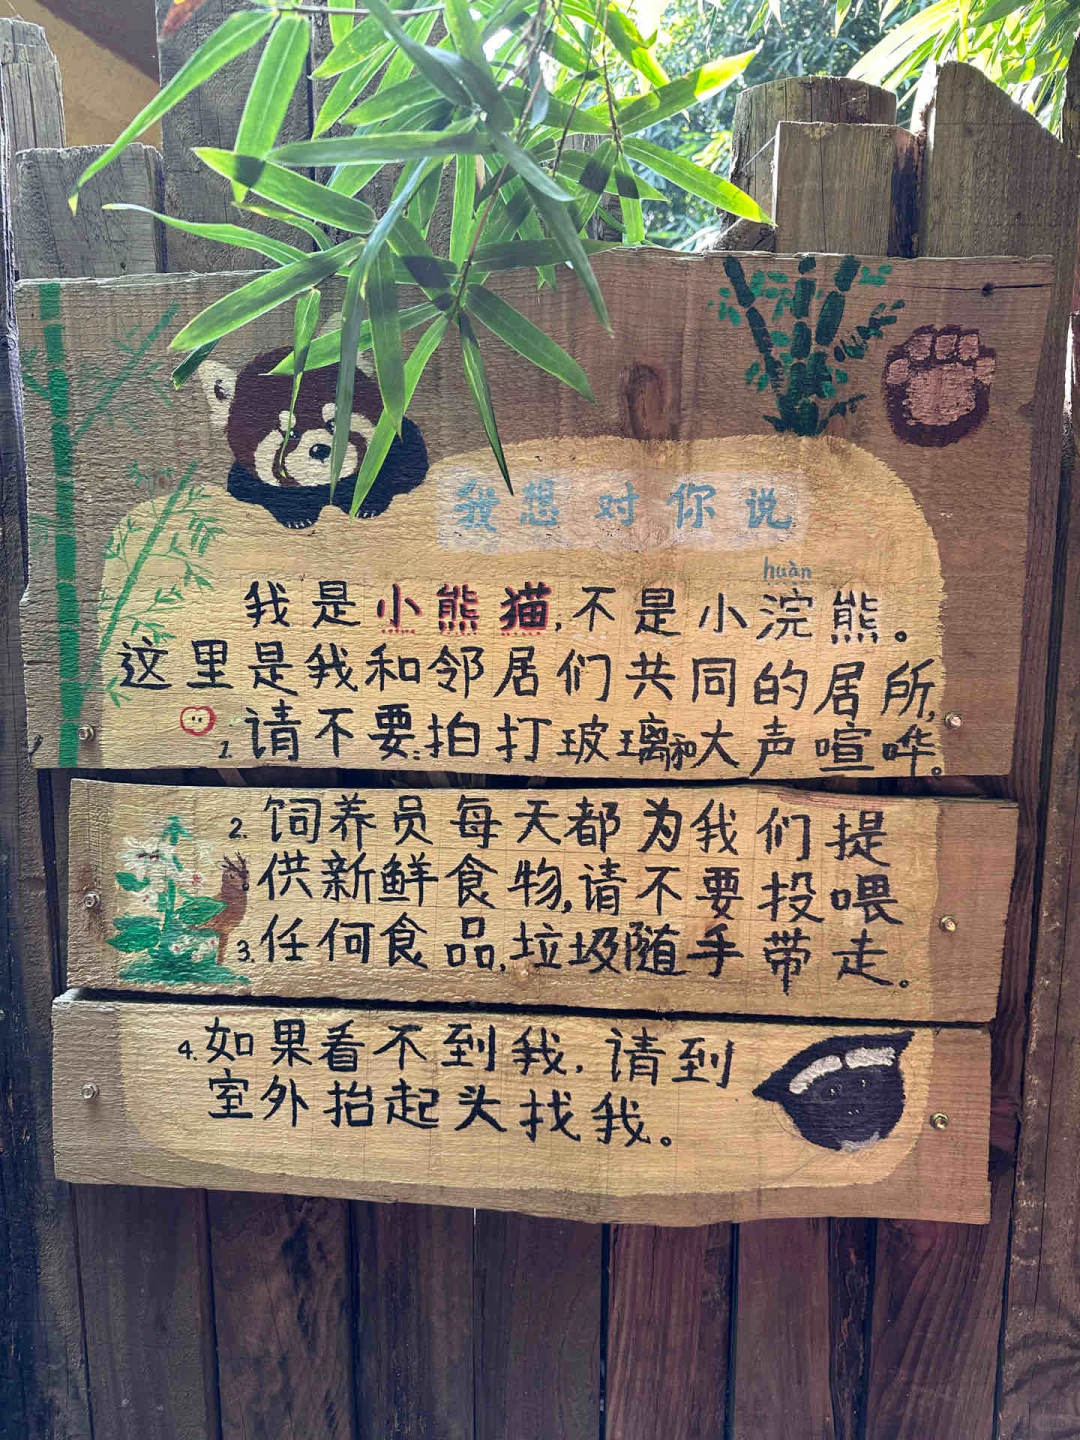 我想对你说
huàn
我是小熊猫,不是小浣熊。
这里是我和邻居们共同的居所,
1.请不要拍打玻璃和大声喧哗。
2.饲养员每天都为我们提
供新鲜食物,请不要投喂
3.任何食品,垃圾随手带走。
4.如果看不到我,请到
室外抬起头找我。